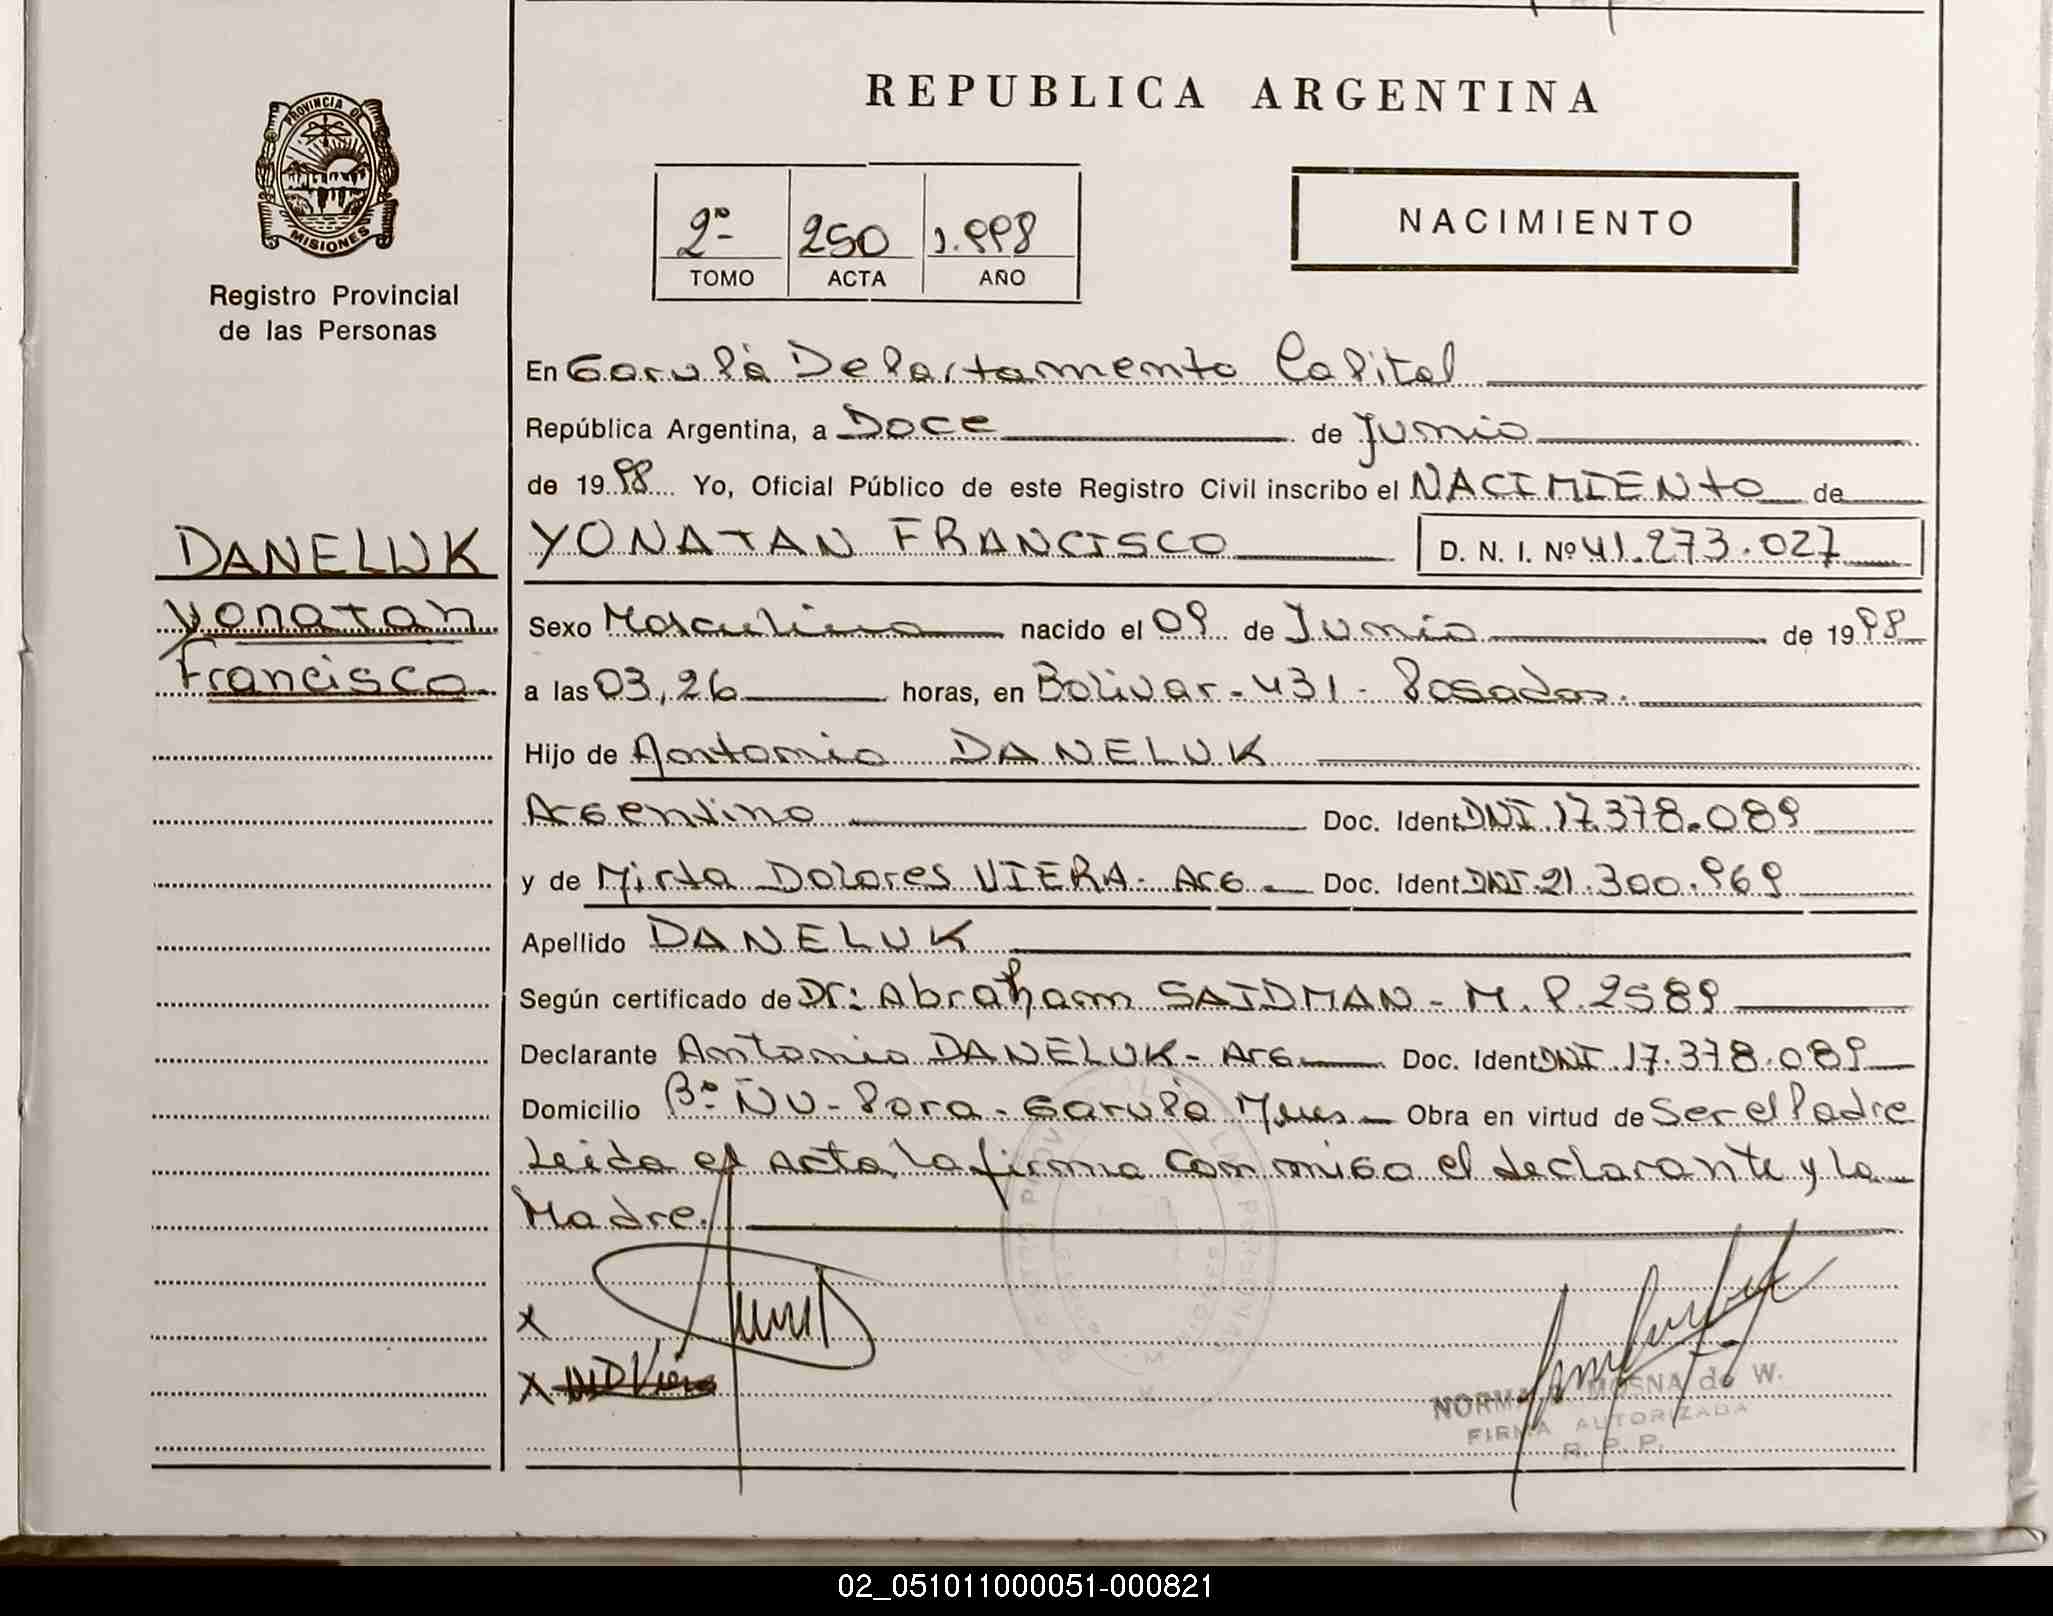 REPUBLICA ARGENTINA
PROVINCIA DE
MISIONES
Registro Provincial
de las Personas
2º 250 1.998
TOMO ACTA AÑO
NACIMIENTO
En Garupá Departamento Capital
República Argentina, a Doce de Junio
de 1998 Yo, Oficial Público de este Registro Civil inscribo el NACIMIENTO de
DANELUK
Yonatan
Francisco
YONATAN FRANCISCO D. N. I. Nº 41.273.027
Sexo Masculino nacido el 09 de Junio de 1998
a las 03,26 horas, en Bolivar - 431 - Posadas.
Hijo de Antonio DANELUK
Argentino Doc. Ident DNI.17.378.089
y de Mirta Dolores VIERA - Arg - Doc. Ident DNI.21.300.969
Apellido DANELUK
Según certificado de Dr: Abraham SAIDMAN - M.P. 2589
Declarante Antonio DANELUK - Arg Doc. Ident DNI.17.378.089
Domicilio Bº ÑU - Pora - Garupá Mnes - Obra en virtud de Ser el Padre
Leida el acta, la firma conmigo el declarante y la
Madre.
X
X MDViera
NORMA MOSNA de W.
FIRMA AUTORIZADA
R. P. P.
02_051011000051-000821